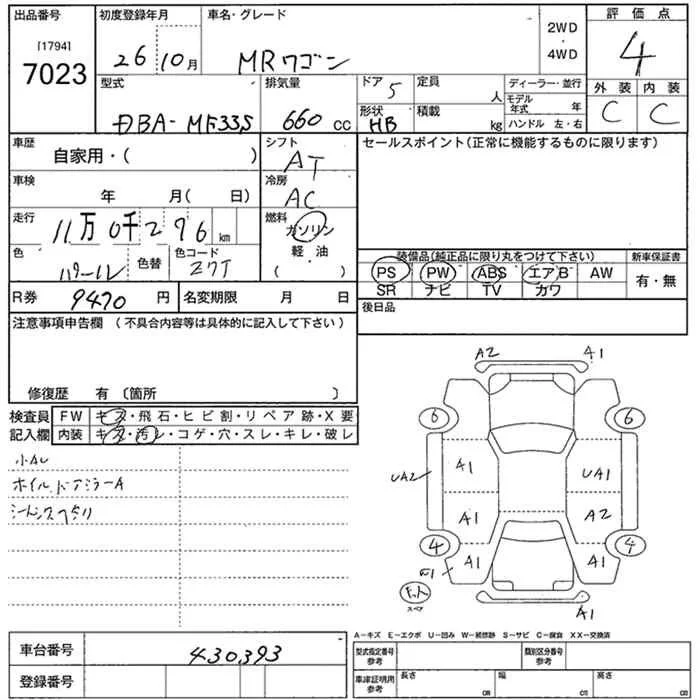 出品番号 初度登録年月 車名・グレード 2WD・4WD 評価点
[1794] 7023 26 10月 MRワゴン 4
型式 排気量 ドア 5 定員 人 ディーラー・並行 外装 内装
DBA-MF33S 660 CC 形状 HB 積載 kg モデル年式 年 ハンドル 左・右 C C
車歴 自家用・( ) シフト AT セールスポイント(正常に機能するものに限ります)
車検 年 月( 日) 冷房 AC
走行 11万0千276 km 燃料 ガソリン
色 パール 色替 色コード Z7T 軽油・( ) 装備品(純正品に限り丸をつけて下さい) 新車保証書
PS PW ABS エアB AW 有・無
R券 9470円 名変期限 月 日 SR ナビ TV カワ
注意事項申告欄 (不具合内容等は具体的に記入して下さい) 後日品
修復歴 有 〔箇所 〕
検査員 FW キズ・飛石・ヒビ割・リペア跡・X要
記入欄 内装 キズ・汚レ・コゲ・穴・スレ・キレ・破レ
小AU
ホイル、ドアミラーA
A2 A1
6 6
A1 UA1
UA2
A1 A2
4 A1 A1 4
スペア A1
A-キズ E-エクボ U-凹み W-補修跡 S-サビ C-腐食 XX-交換済
車台番号 430393 型式指定番号 参考 類別区分番号 参考
登録番号 車庫証明用 参考 長さ cm 幅 cm 高さ cm